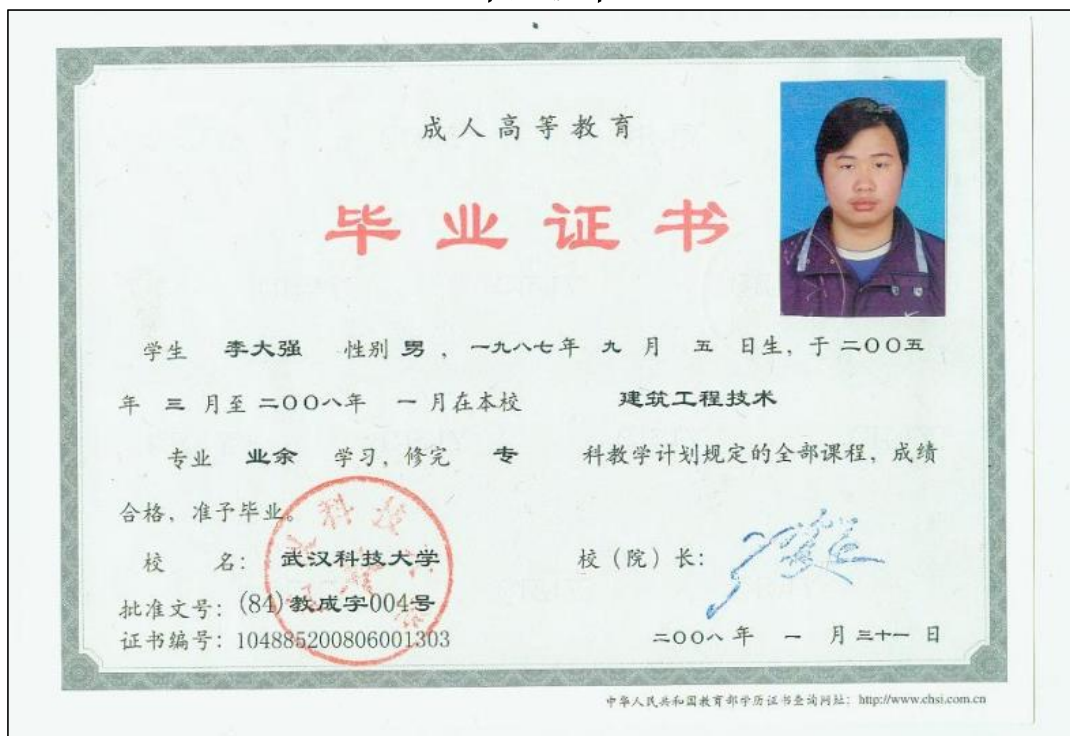 成人高等教育
毕业证书
学生 李大强 性别 男，一九八七年 九 月 五 日生，于 二〇〇五
年 三 月至 二〇〇八年 一 月在本校 建筑工程技术
专业 业余 学习，修完 专 科教学计划规定的全部课程，成绩
合格，准予毕业。
校 名：武汉科技大学 校（院）长：
批准文号：(84)教成字004号
证书编号：104885200806001303 二〇〇八 年 一 月 三十一 日
中华人民共和国教育部学历证书查询网址：http://www.chsi.com.cn